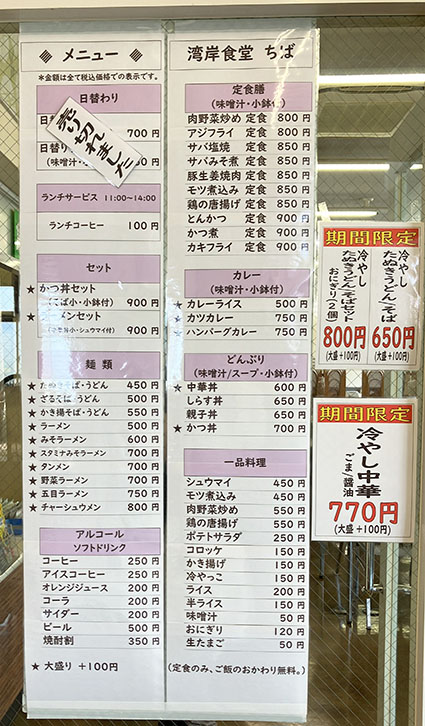 メニュー
*金額は全て税込価格での表示です。
日替わり
日替
700 円
日替
(味噌汁・
円
売り切れました
ランチサービス 11:00~14:00
ランチコーヒー 100 円
セット
★ かつ丼セット
(そば小・小鉢付) 900 円
★ ラーメンセット
小・シュウマイ付) 900 円
麺 類
★ たぬきそば・うどん 450 円
★ ざるそば・うどん 500 円
★ かき揚そば・うどん 550 円
★ ラーメン 500 円
★ みそラーメン 600 円
★ スタミナみそラーメン 700 円
★ タンメン 700 円
★ 野菜ラーメン 700 円
★ 五目ラーメン 750 円
★ チャーシュウメン 800 円
アルコール
ソフトドリンク
コーヒー 250 円
アイスコーヒー 250 円
オレンジジュース 200 円
コーラ 200 円
サイダー 200 円
ビール 500 円
焼酎割 350 円
★ 大盛り +100円
湾岸食堂 ちば
定食膳
(味噌汁・小鉢付)
肉野菜炒め 定食 800 円
アジフライ 定食 800 円
サバ塩焼 定食 800 円
サバみそ煮 定食 800 円
豚生姜焼肉 定食 800 円
モツ煮込み 定食 800 円
鶏の唐揚げ 定食 800 円
とんかつ 定食 900 円
かつ煮 定食 900 円
カキフライ 定食 900 円
カレー
(味噌汁・小鉢付)
★ カレーライス 500 円
★ カツカレー 750 円
★ ハンバーグカレー 750 円
どんぶり
(味噌汁/スープ・小鉢付)
★ 中華丼 600 円
しらす丼 650 円
親子丼 650 円
★ かつ丼 700 円
一品料理
シュウマイ 450 円
モツ煮込み 450 円
肉野菜炒め 550 円
鶏の唐揚げ 550 円
ポテトサラダ 250 円
コロッケ 150 円
かき揚げ 150 円
冷やっこ 150 円
ライス 200 円
半ライス 150 円
味噌汁 50 円
おにぎり 120 円
生たまご 50 円
(定食のみ、ご飯のおかわり無料。)
期間限定
冷やし
たぬきうどん/そば
650円
(大盛 +100円)
冷やし
たぬきうどん/そばセット
おにぎり(2個)
800円
(大盛 +100円)
期間限定
冷やし中華
ごま/醤油
770円
(大盛 +100円)